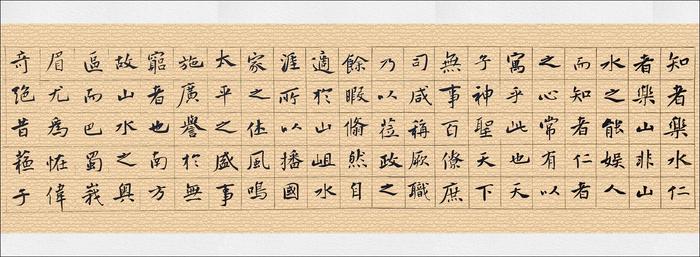 知者樂水仁
者樂山非山
水之能娛人
而知者仁者
之心常有以
寓乎此也天
子神聖天下
無事百僚庶
司咸稱厥職
乃以莅政之
餘暇翛然自
適於山岨水
涯所以播國
家之休風鳴
太平之盛事
施廣譽於無
窮者也南方
故山水之奧
區而巴蜀峩
眉尤為恠偉
奇絕昔蘇子